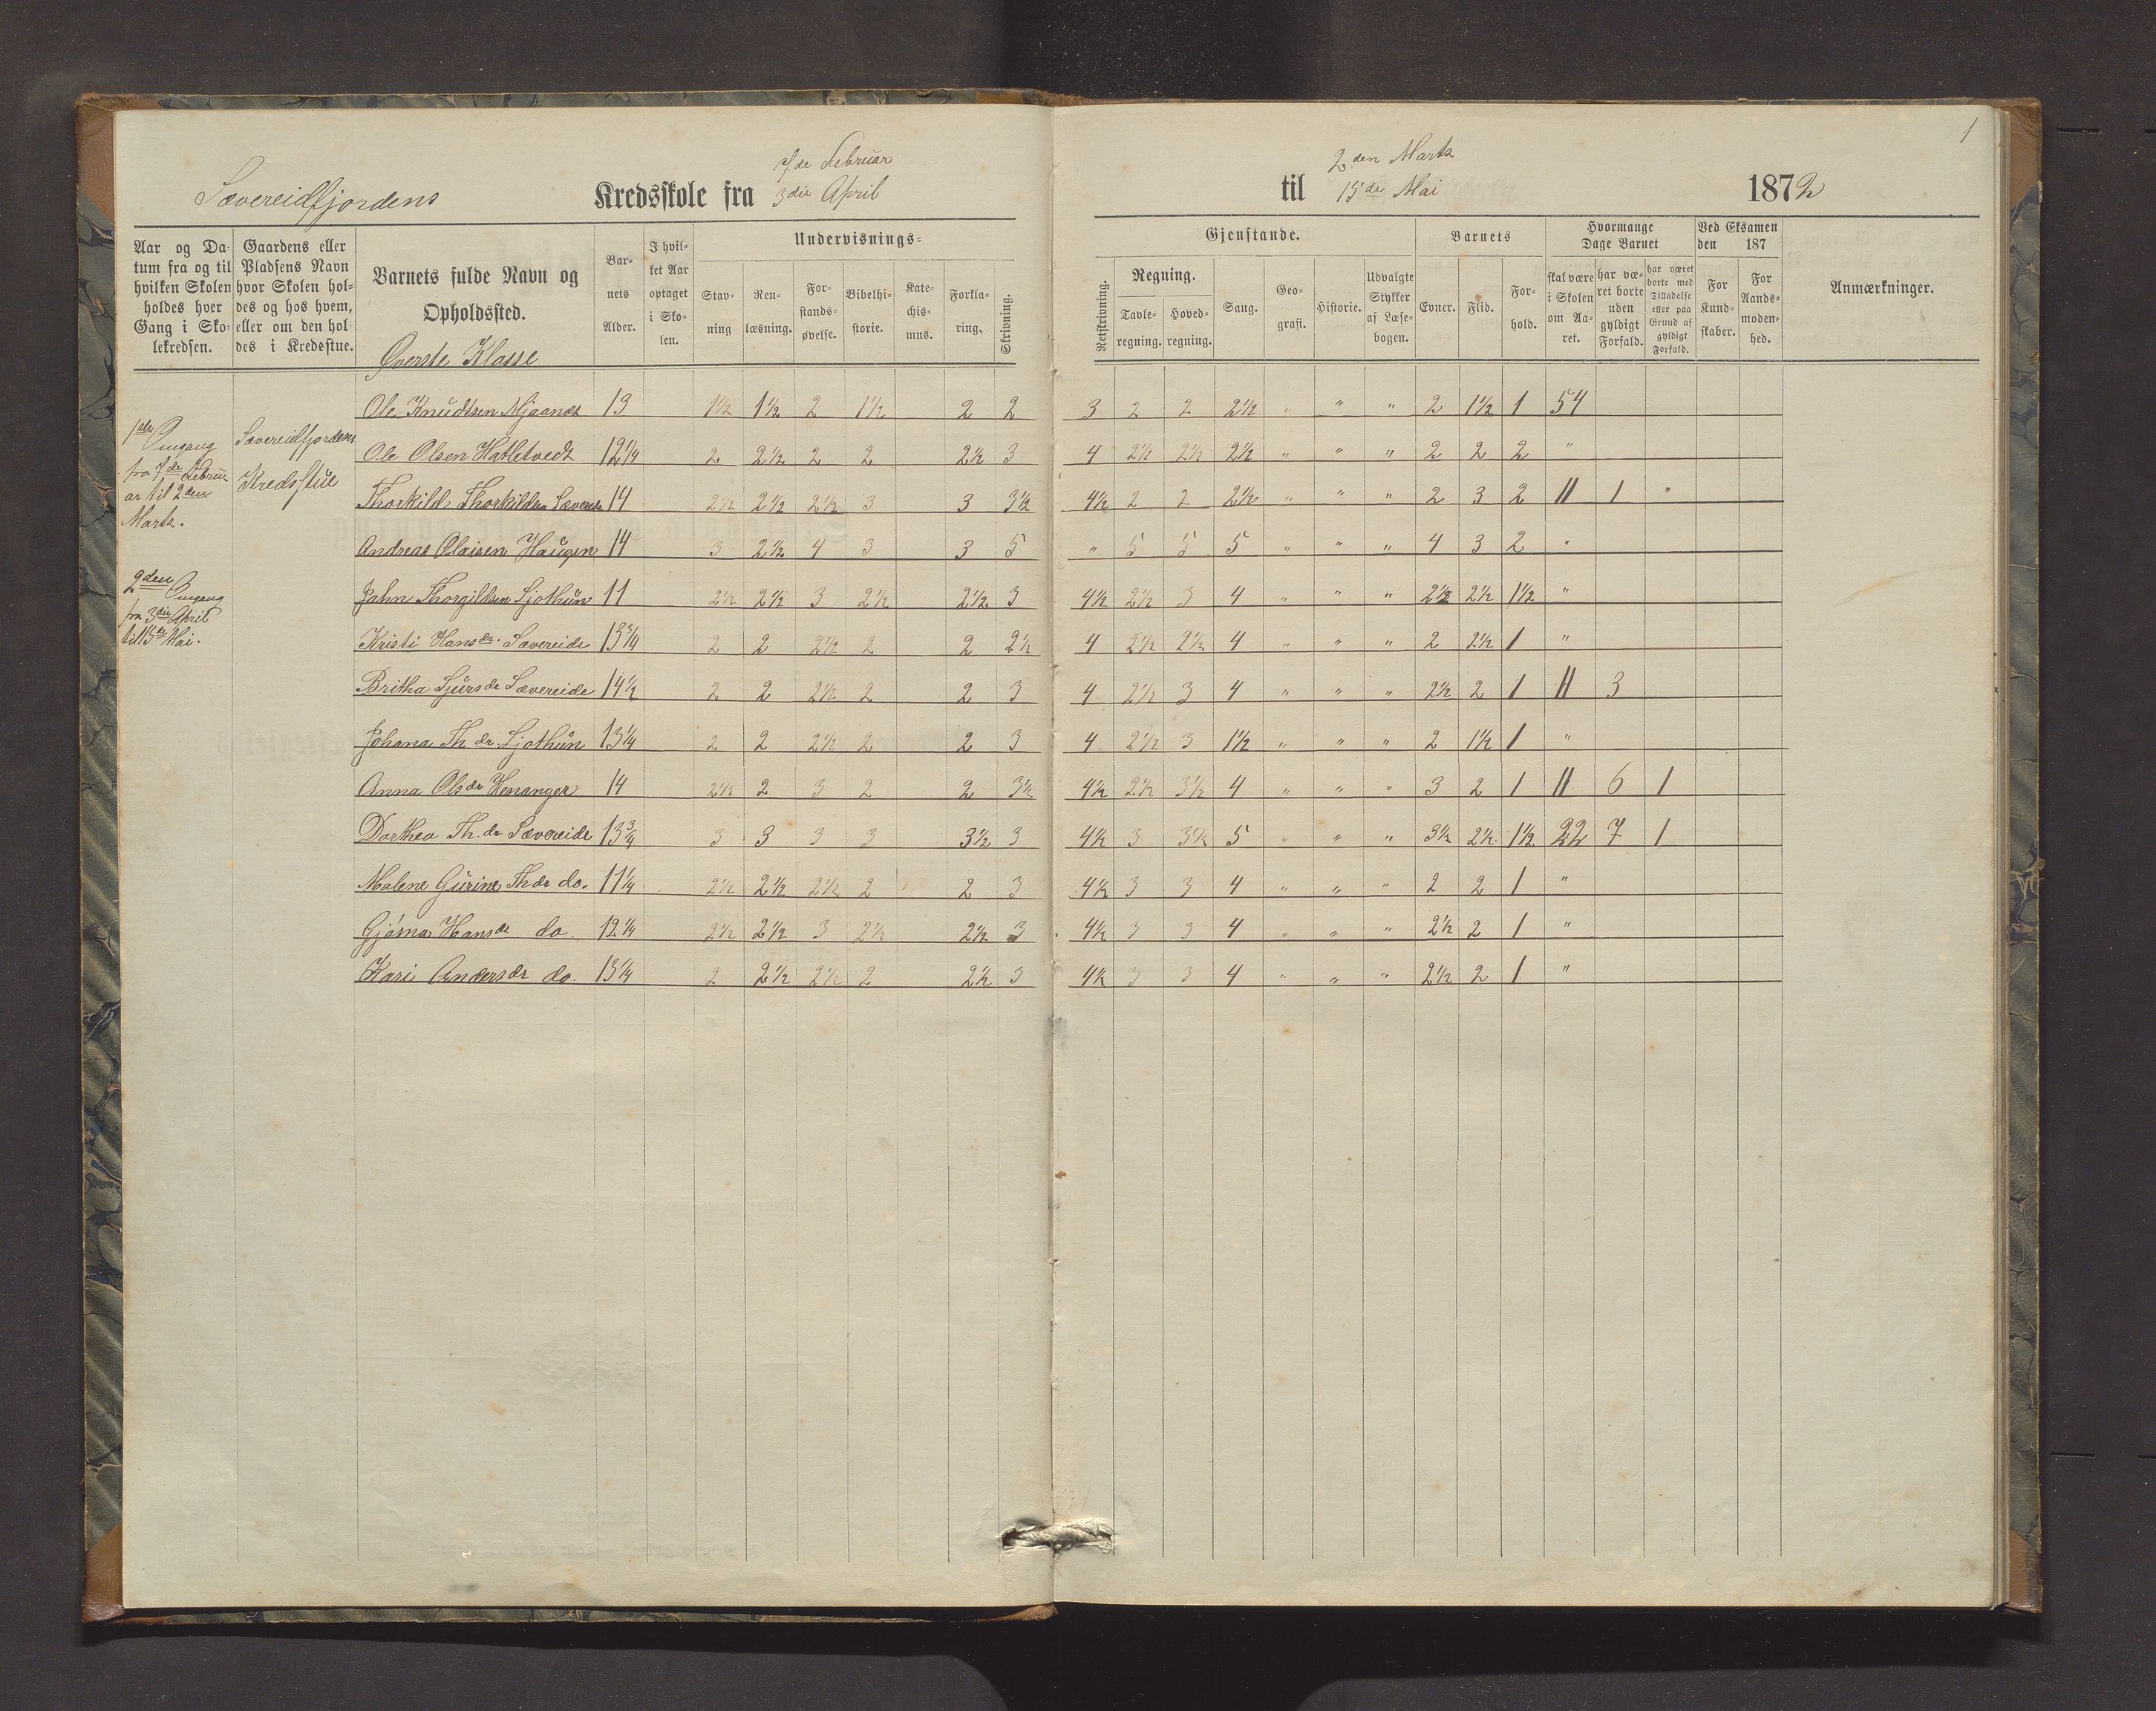 1
Sævereidfjordens Kredsskole fra 7de Februar 3die April til 2den Marts 15de Mai 1872
Aar og Datum fra og til hvilken Skolen holdes hver Gang i Skolekredsen.
Gaardens eller Pladsens Navn hvor Skolen holdes og hos hvem, eller om den holdes i Kredsstue.
Barnets fulde Navn og Opholdssted.
Barnets Alder.
I hvilket Aar optaget i Skolen.
Undervisnings-
Stavning
Renlæsning.
Forstandsøvelse.
Bibelhistorie.
Katechismus.
Forklaring.
Skrivning.
Gjenstande.
Retskrivning.
Regning.
Tavleregning.
Hovedregning.
Sang.
Geografi.
Historie.
Udvalgte Stykker af Læsebogen.
Barnets
Evner.
Flid.
Forhold.
Hvormange Dage Barnet
skal være i Skolen om Aaret.
har været borte uden gyldigt Forfald.
har været borte med Tilladelse eller paa Grund af gyldigt Forfald.
Ved Eksamen den 187
For Kundskaber.
For Aandsmodenhed.
Anmærkninger.
Øverste Klasse
1ste Omgang
fra 7de Febru-
ar til 2den
Marts.
2den Omgang
fra 3die April
til 15de Mai.
Sævereidfjordens
Kredsstue
Ole Knudtsen Mjaanes 13 1½ 1½ 2 1½ 2 2 3 2 2 2½ " " " 2 1½ 1 54
Ole Olsen Hatletvedt 12¼ 2 2½ 2 2 2½ 3 4 2½ 2½ 2½ " " " 2 2 2 "
Thorkild Thorkildsen Sævereide 14 2½ 2½ 2½ 3 3 3½ 4½ 2 2 2½ " " " 2 3 2 11 1 "
Andreas Olaisen Haugen 14 3 2½ 4 3 3 5 " 5 5 5 " " " 4 3 2 "
Jahn Thorgildsen Ljothun 11 2½ 2½ 3 2½ 2½ 3 4½ 2½ 3 4 " " " 2½ 2½ 1½ "
Kristi Hansdr. Sævereide 13¾ 2 2 2½ 2 2 2½ 4 2½ 2½ 4 " " " 2 2½ 1 "
Britha Sjursdr Sævereide 14½ 2 2 2½ 2 2 3 4 2½ 3 4 " " " 2½ 2 1 11 3
Johana Th.dr Ljothun 13¼ 2 2 2½ 2 2 3 4 2½ 3 1½ " " " 2 1½ 1 "
Anna Olsdr Henanger 14 2½ 2 3 2 2 3½ 4½ 2½ 3½ 4 " " " 3 2 1 11 6 1
Dorthea Th.dr Sævereide 13¾ 3 3 3 3 3½ 3 4½ 3 3½ 5 " " " 3½ 2½ 1½ 22 7 1
Malene Gurine Thdr do. 11¼ 2½ 2½ 2½ 2 2 3 4½ 3 3 4 " " " 2 2 1 "
Hansdr do. 12¼ 2½ 2½ 3 2½ 2½ 3 4½ 3 3 4 " " " 2½ 2 1 "
Kari Andersdr do. 13¼ 2 2½ 2½ 2 2½ 3 4½ 3 3 4 " " " 2½ 2 1 "